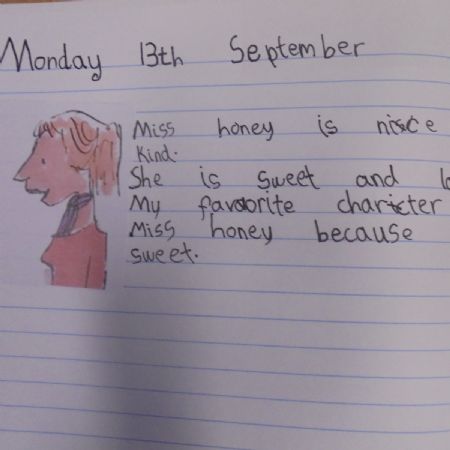 Monday 13th September
Miss honey is nisce
kind.
She is sweet and
My favoorite charicter
Miss honey because
sweet.